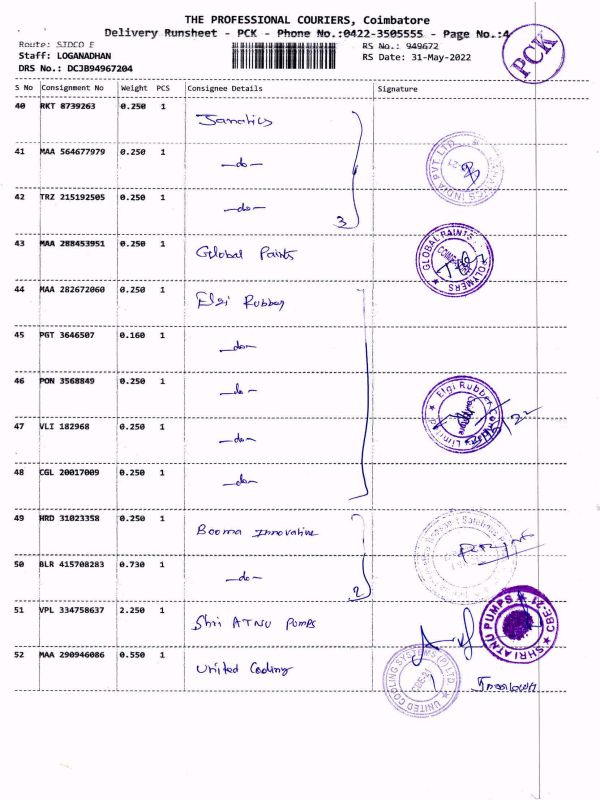 THE PROFESSIONAL COURIERS, Coimbatore
Delivery Runsheet - PCK - Phone No.:0422-3505555 - Page No.:4
PCK
Route: SIDCO E
RS No.: 949672
Staff: LOGANADHAN
RS Date: 31-May-2022
DRS No.: DCJB94967204
S No Consignment No Weight PCS Consignee Details Signature
40 RKT 8739263 0.250 1 Janatics
41 MAA 564677979 0.250 1 -do-
42 TRZ 215192505 0.250 1 -do-
3
43 MAA 288453951 0.250 1 Global Paints
GLOBAL PAINTS POLYMERS
44 MAA 282672060 0.250 1 Elgi Rubber
45 PGT 3646507 0.160 1 -do-
46 PON 3568849 0.250 1 -do-
Elgi Rubber Company Limited
47 VLI 182968 0.250 1 -do-
48 CGL 20017009 0.250 1 -do-
49 HRD 31023358 0.250 1 Booma Innovative
50 BLR 415708283 0.730 1 -do-
2
51 VPL 334758637 2.250 1 Shri ATNU Pumps
SHRI ATNU PUMPS CBE-21
52 MAA 290946086 0.550 1 United Cooling
UNITED COOLING SYSTEMS (P) LTD
CBE-21